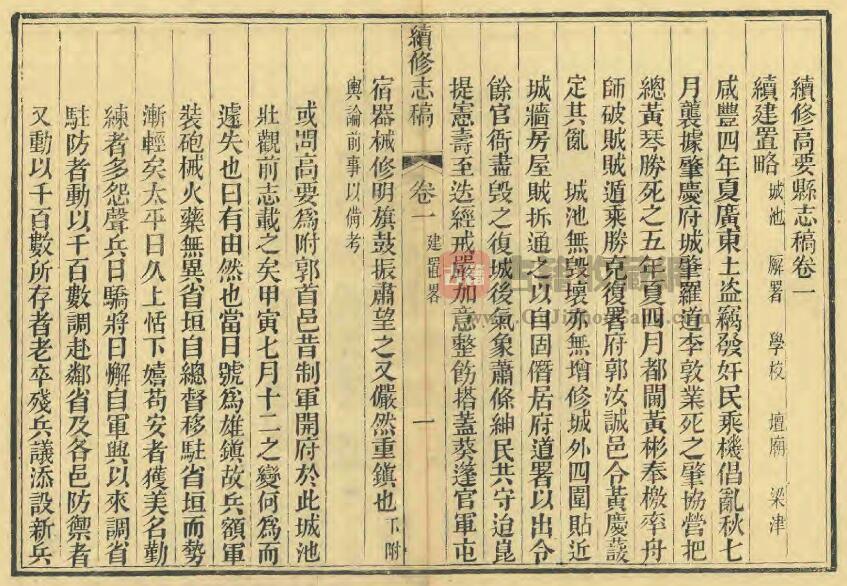 續修高要縣志稿卷一
續建置略 城池 廨署 學校 壇廟 梁津
咸豐四年夏廣東土盜竊發奸民乘機倡亂秋七
月襲據肇慶府城肇羅道李敦業死之肇協營把
總黃琴勝死之五年夏四月都閫黃彬奉檄率舟
師破賊賊遁乘勝克復署府郭汝誠邑令黃慶
定其亂 城池無毀壞亦無增修城外四圍貼近
城牆房屋賊拆通之以自固僭居府道署以出令
餘官衙盡毀之復城後氣象蕭條紳民共守迨崑
提憲壽至迭經戒嚴加意整飭搭蓋葵蓬官軍屯
續修志稿 卷一 建置畧 一
宿器械修明旗鼓振肅望之又儼然重鎮也 下附
輿論前事以備考
或問高要爲附郭首邑昔制軍開府於此城池
壯觀前志載之矣甲寅七月十二之變何爲而
遽失也曰有由然也當日號爲雄鎮故兵額軍
裝砲械火藥無異省垣自總督移駐省垣而勢
漸輕矣太平日久上恬下嬉苟安者獲美名勤
練者多怨聲兵日驕將日懈自軍興以來調省
駐防者動以千百數調赴鄰省及各邑防禦者
又動以千百數所存者老卒殘兵議添設新兵